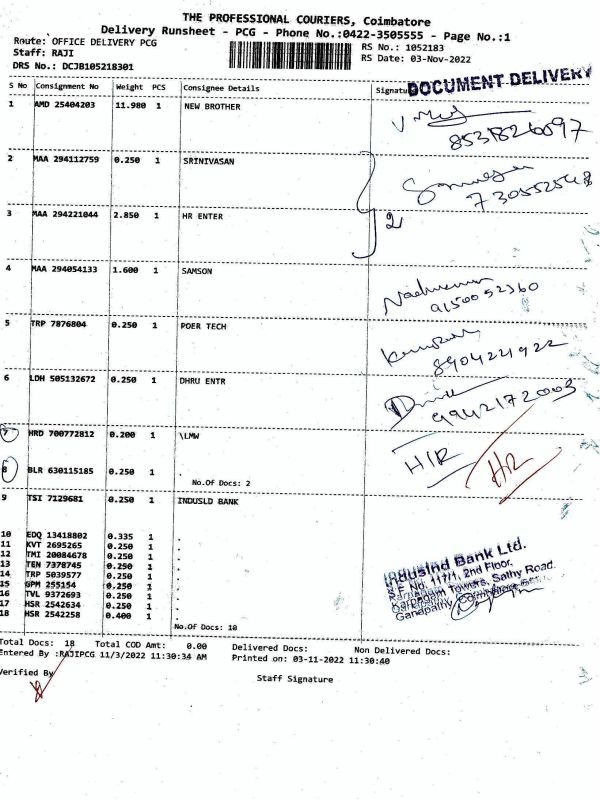 THE PROFESSIONAL COURIERS, Coimbatore
Delivery Runsheet - PCG - Phone No.:0422-3505555 - Page No.:1
Route: OFFICE DELIVERY PCG
Staff: RAJI
DRS No.: DCJB105218301
RS No.: 1052183
RS Date: 03-Nov-2022
S No Consignment No Weight PCS Consignee Details Signatu
DOCUMENT DELIVERY
1 AMD 25404203 11.980 1 NEW BROTHER
8531826097
2 MAA 294112759 0.250 1 SRINIVASAN
7305525548
3 MAA 294221044 2.850 1 HR ENTER
2
4 MAA 294054133 1.600 1 SAMSON
9150052360
5 TRP 7876804 0.250 1 POER TECH
8904221922
6 LDH 505132672 0.250 1 DHRU ENTR
9942172003
7 HRD 700772812 0.200 1 \LMW
H/R
HR
8 BLR 630115185 0.250 1 .
No.Of Docs: 2
9 TSI 7129681 0.250 1 INDUSLD BANK
10 EDQ 13418802 0.335 1 .
11 KVT 2695265 0.250 1 .
12 TMI 20084678 0.250 1 .
13 TEN 7378745 0.250 1 .
14 TRP 5039577 0.250 1 .
15 GPM 255154 0.250 1 .
16 TVL 9372693 0.250 1 .
17 HSR 2542634 0.250 1 .
18 HSR 2542258 0.400 1 .
No.Of Docs: 10
IndusInd Bank Ltd.
S.F. No. 117/1, 2nd Floor,
Karpagam Towers, Sathy Road.
Ganapathy, Coimbatore
Total Docs: 18 Total COD Amt: 0.00 Delivered Docs: Non Delivered Docs:
Entered By :RAJIPCG 11/3/2022 11:30:34 AM Printed on: 03-11-2022 11:30:40
Verified By
Staff Signature